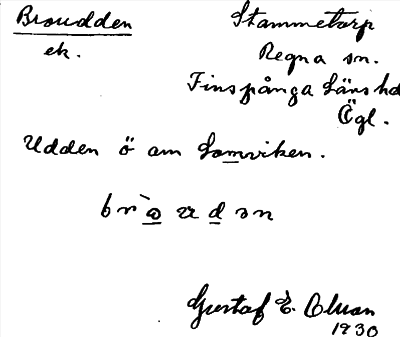 Broudden
ek.
Stammetorp
Regna sn.
Finspånga läns hd
Ögl.
Udden ö om Lomviken.
Gustaf E.
1930